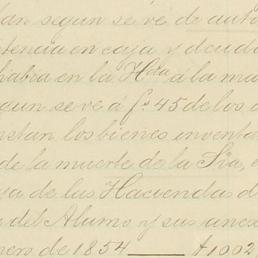 tan segun se ve de auto
tencia en caja y deuda
habia en la Hda á la ma
gun se ve á fs 45 de los a
nstan los bienes inventa
de la muerte de la Sra, e
ya de las Haciendas d
del Alamo y sus anex
nero de 1854 — $1002